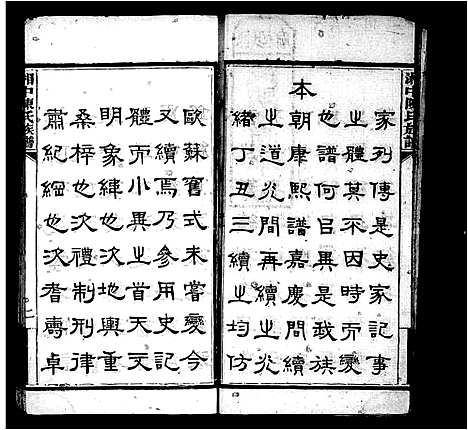 家列傳是史家記事
之體其不因時而變
也譜何㠯異是我族
本
朝康熙譜嘉慶間續
之道光間再續之光
緒丁丑三續之均仿
歐蘇舊式未嘗變今
又續焉乃參用史記
體而小異之首天文
明象緯也次地輿重
桑梓也次禮制刑律
肅紀綱也次耆壽卓
湘中陳氏族譜
湘中陳氏族譜